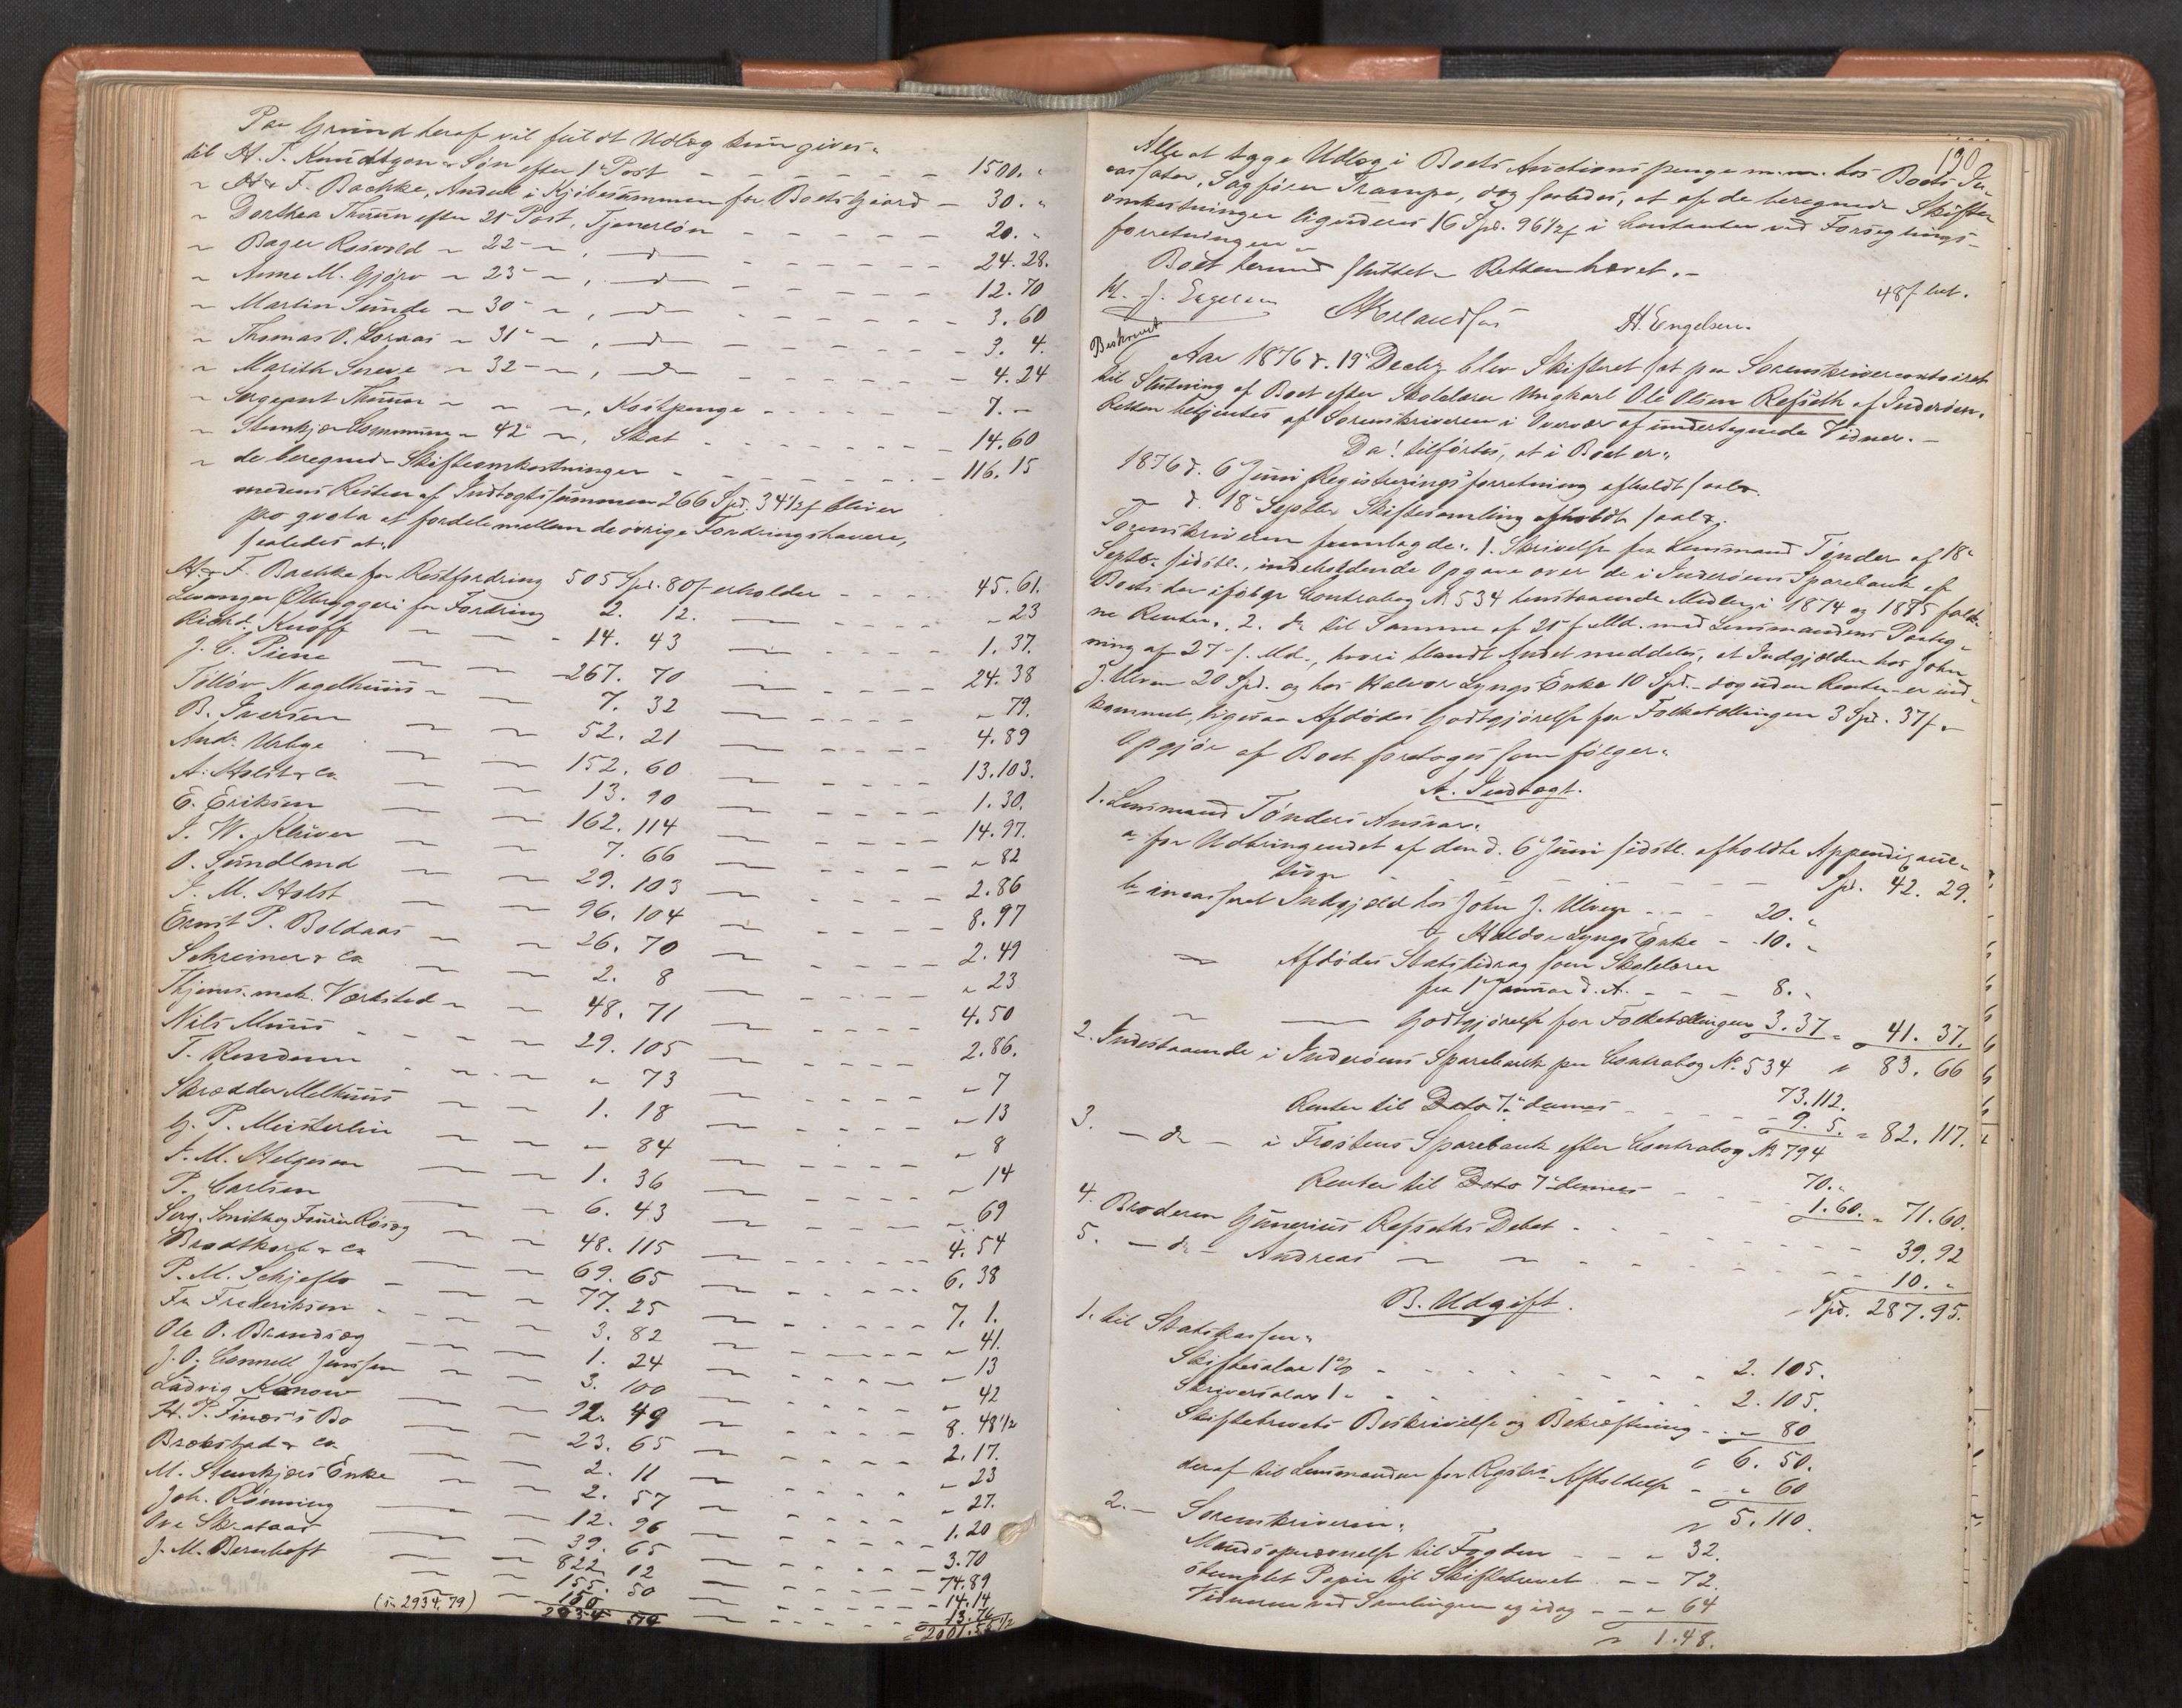 Paa Grund heraf vil fuldt Udlæg kun gives:
til H. T. Knudtzon & Søn efter 1ste Post - - - - - 1500. "
" H. & F. Bachke, Andeel i Kjøbesummen for Boets Gaard - 30. "
" Dorthea Thuun efter 21 Post, Tjenerløn - - - - 20. "
" Bager Rosvold " 22 " , do - - - - 24. 28.
" Anne M. Gjørv " 23 " , do - - - - 12. 70
" Martin Sunde " 30 " , do - - - - 3. 60
" Thomas O. Loraas " 31 " , do - - - - 3. 4.
" Marith Sneve " 32 " , do - - - - 4. 24
" Sergeant Thuun " " " , Kostpenge - - - - 7. "
" Stenkjær Commune " 42 " , Skat - - - - 14. 60
" de beregnede Skifteomkostninger - - - - 116. 15
medens Resten af Indtægtssummen 266 Spd. 34 1/2 f bliver
pro qvota at fordele mellem de øvrige Fordringshavere,
saaledes at:
H. & F. Bachke for Restfordring 505 Spd. 80 f erholder - - - 45. 61.
Levanger Ølbryggeri for Fordring 2. 12. - - - " 23
Richd. Knoff - - 14. 43 - - - 1. 37.
J. C. Piene - - 267. 70 - - - 24. 38
Tølløv Nagelhuus - - 7. 32 - - - " 79.
B. Iversen - - 52. 21 - - - 4. 89
Andr. Urbye - - 152. 60 - - - 13. 103.
A. Holst & Co - - 13. 90 - - - 1. 30.
E. Eriksen - - 162. 114 - - - 14. 97.
I. W. Klüver - - 7. 66 - - - " 82
O. Sundland - - 29. 103 - - - 2. 86
I. M. Holst - - 96. 104 - - - 8. 97
Ernst P. Boldaas - - 26. 70 - - - 2. 49
Schreiner & Co - - 2. 8 - - - " 23
Thjems. mek. Værksted - - 48. 71 - - - 4. 50
Nils Muus - - 29. 105 - - - 2. 86.
T. Rendum - - " 73 - - - " 7
Skrædder Melhuus - - 1. 18 - - - " 13
G. P. Meisterlin - - " 84 - - - " 8
I. M. Helgesen - - 1. 36 - - - " 14
P. Carlsen - - 6. 43 - - - " 69
Serg. Smith og Røsæg - - 48. 115 - - - 4. 54
Brodtkorb & Co - - 69. 65 - - - 6. 38
P. M. Schjeflo - - 77. 25 - - - 7. 1.
Fr. Frederiksen - - 3. 82 - - - " 41.
Ole O. Brandsæg - - 1. 24 - - - " 13
J. O. Jenssen - - 3. 100 - - - " 42
Ludvig Konow - - 92. 49 - - - 8. 48 1/2
H. P. Finæs's Bo - - 23. 65 - - - 2. 17.
Brobstad & Co - - 2. 11 - - - " 23
M. Stenkjærs Enke - - 2. 57 - - - " 27.
Joh. Rønning - - 12. 96 - - - 1. 20
Ove Skrataas - - 39. 65 - - - 3. 70
J. M. Bernhoft - - 822. 12 - - - 74. 89
155. 50 - - - 14. 14
150 - - - 13. 76
(i: 2934. 79) 2934 79 2001. 55 1/2
190
Alle at tage Udlæg i Boets Auctionspenge m. m. hos Boets In-
cassator, Sagfører Trampe, dog saaledes, at af de beregnede Skifte-
omkostninger lignderes 16 Spd. 96 1/2 f i Contanter ved Forseglings-
forretningen.
Boet hermed sluttet. Retten hævet. -
48 f bet.
H. Engelsen
Beskrevet
Aar 1876 d. 19 Decbr blev Skifteret sat paa Sorenskrivercontoiret
til Slutning af Boet efter Skolelærer Ungkarl Ole Olsen Refseth af Inderøen.
Retten betjentes af Sorenskriveren i Overvær af undertegnede Vidner. -
Da! tilførtes, at i Boet er:
1876 d. 6 Juni Registreringsforretning afholdt saal.
" d. 18 Septbr Skiftesamling afholdt saal.
Sorenskriveren fremlagde: 1. Skrivelse fra Lensmand Tønder af 18
Septbr. sidstl., indeholdende Opgave over de i Inderøens Sparebank af
Boets der ifølge Contrabog No 534 henstaaende Midler i 1874 og 1875 faldt-
ne Renter. 2. do til Samme af 25 f. Md. med Lensmandens Paateg-
ning af 27 s. Md., hvori blandt Andet meddeles, at Indgjælden hos John
J. Ulven 20 Spd. og hos Halvor Lyngs Enke 10 Spd. - dog uden Renter - er ind-
kommet, ligesaa Afdødes Godtgjørelse for Folketællingen 3 Spd. 37 f.
Opgjør af Boet foretages som følger:
A. Indtægt.
1. Lensmand Tønders Ansvar:
a for Udbringendet af den d. 6 Juni sidstl. afholdte Appendixauc-
tion - - - - - Spd. 42. 29.
b incasseret Indgjæld hos John J. Ulven - - - 20. "
" Halvor Lyngs Enke - 10. "
" Afdødes Statsbidrag som Skolelærer
fra 1 Januar d. A. - - - 8. "
" Godtgjørelse for Folketællingen 3. 37 = 41. 37.
" 83. 66
2. Indestaaende i Inderøens Sparebank paa Contrabog No. 534
73. 112.
Renter til Dato 7 dennes - - - 9. 5. = 82. 117.
3. - do - i Frostens Sparebank efter Contrabog No 794
70. "
Renter til Dato 7 dennes - - 1. 60. " 71. 60.
4. Broderen Gunerius Refseths Debet - - - - 39. 92
5. - do - Andreas " " - - - - 10. "
Spd. 287. 95.
B. Udgift.
1. til Statskassen:
Skiftesalær 1% - - - - 2. 105.
Skriversalær 1 " - - - - 2. 105.
Skiftebrevets Beskrivelse og Bekræftning - - " 80
" 6. 50.
deraf til Lensmanden for Regstrs Afholdelse - " 60
" 5. 110.
2. - Sorenskriveren:
til Fogden - - " 32.
stemplet Papir til Skiftebrevet - - " 72.
Vidnerne ved Samlingen og idag - - " 64
" 1. 48.